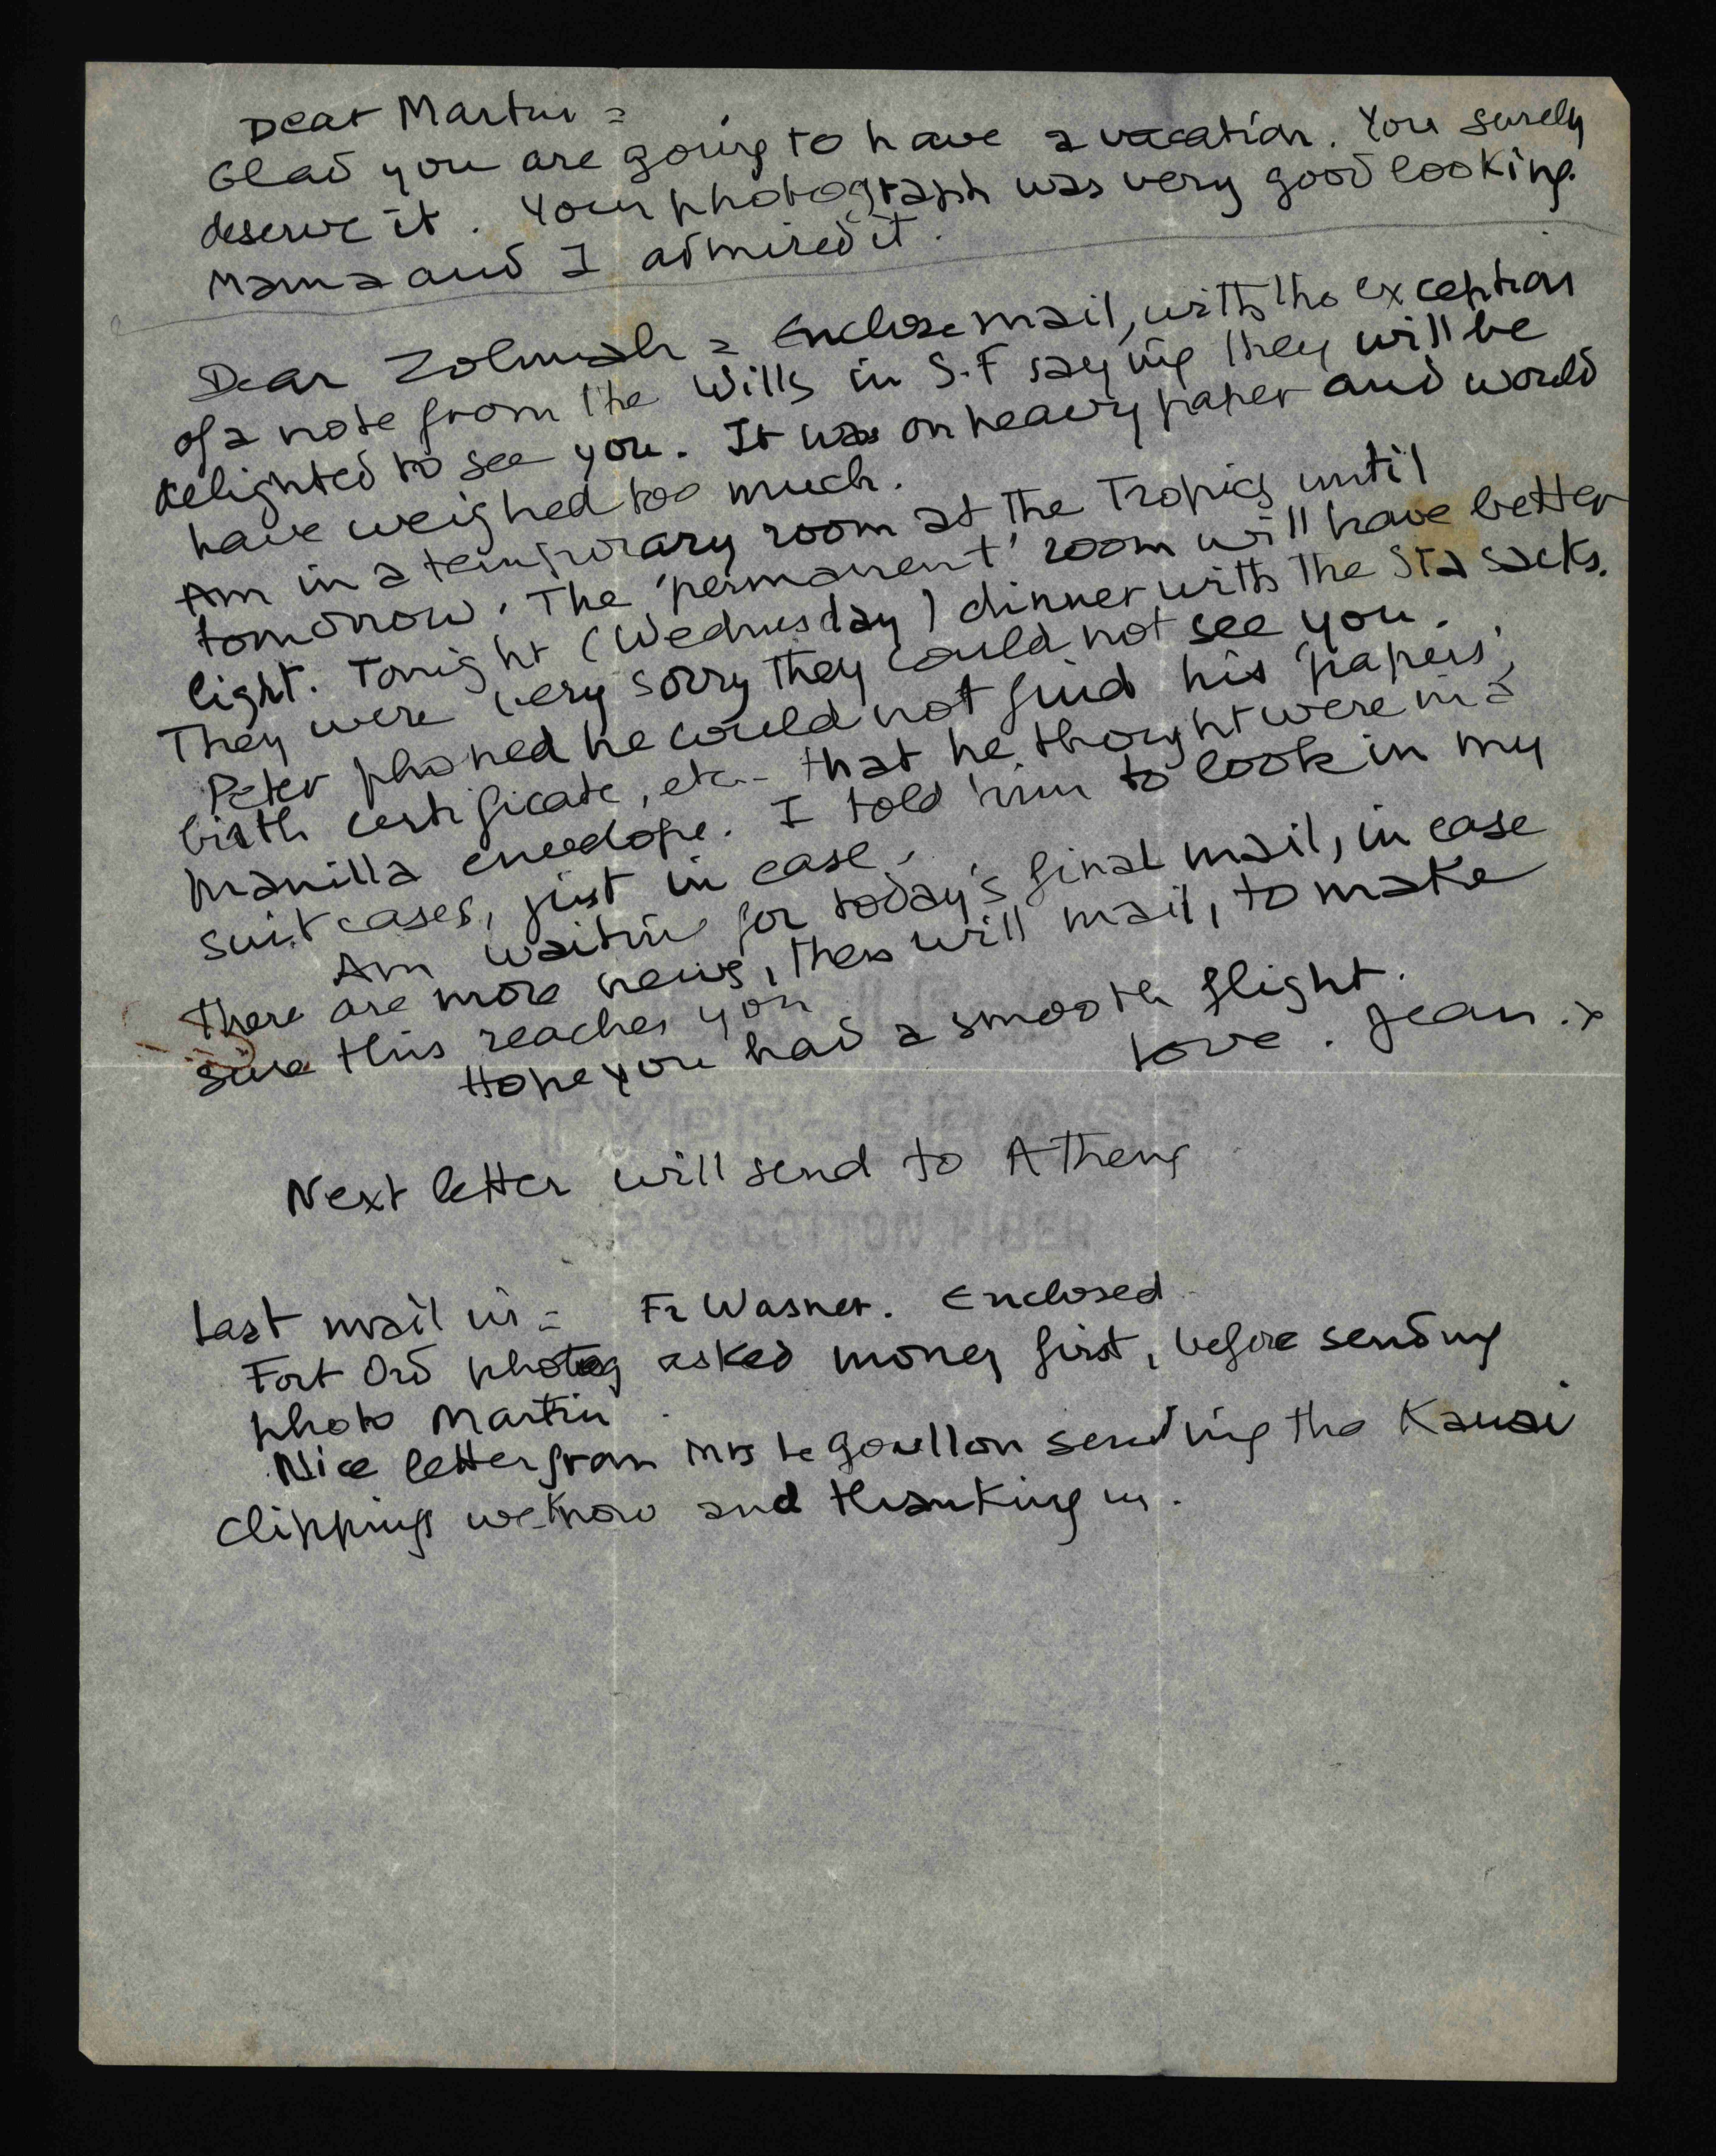 Dear Martin =
Glad you are going to have a vacation. You surely
deserve it. Your photograph was very good looking.
Mama and I admired it.
Dear Zohmah = Enclose mail, with the exception
of a note from the Wills in S.F saying they will be
delighted to see you. It was on heavy paper and would
have weighed too much.
Am in a temporary room at the Tropics until
tomorrow. The 'permanent' room will have better
light. Tonight (Wednesday) dinner with the Stasacks.
They were very sorry they could not see you.
Peter phoned he could not find his 'papers',
birth certificate, etc- that he thought were in a
manilla envelope. I told him to look in my
suitcases, just in case.
Am waiting for today's final mail, in case
there are more news, then will mail, to make
sure this reaches you
Hope you had a smooth flight.
Love. Jean. x
Next letter will send to Athens
25% COTTON FIBER
Last mail in = Fr Wasner. Enclosed
Fort Ord photog asked money first, before sending
photo Martin.
Nice letter from Mrs le Goullon sending the Kauai
clippings we know and thanking us.